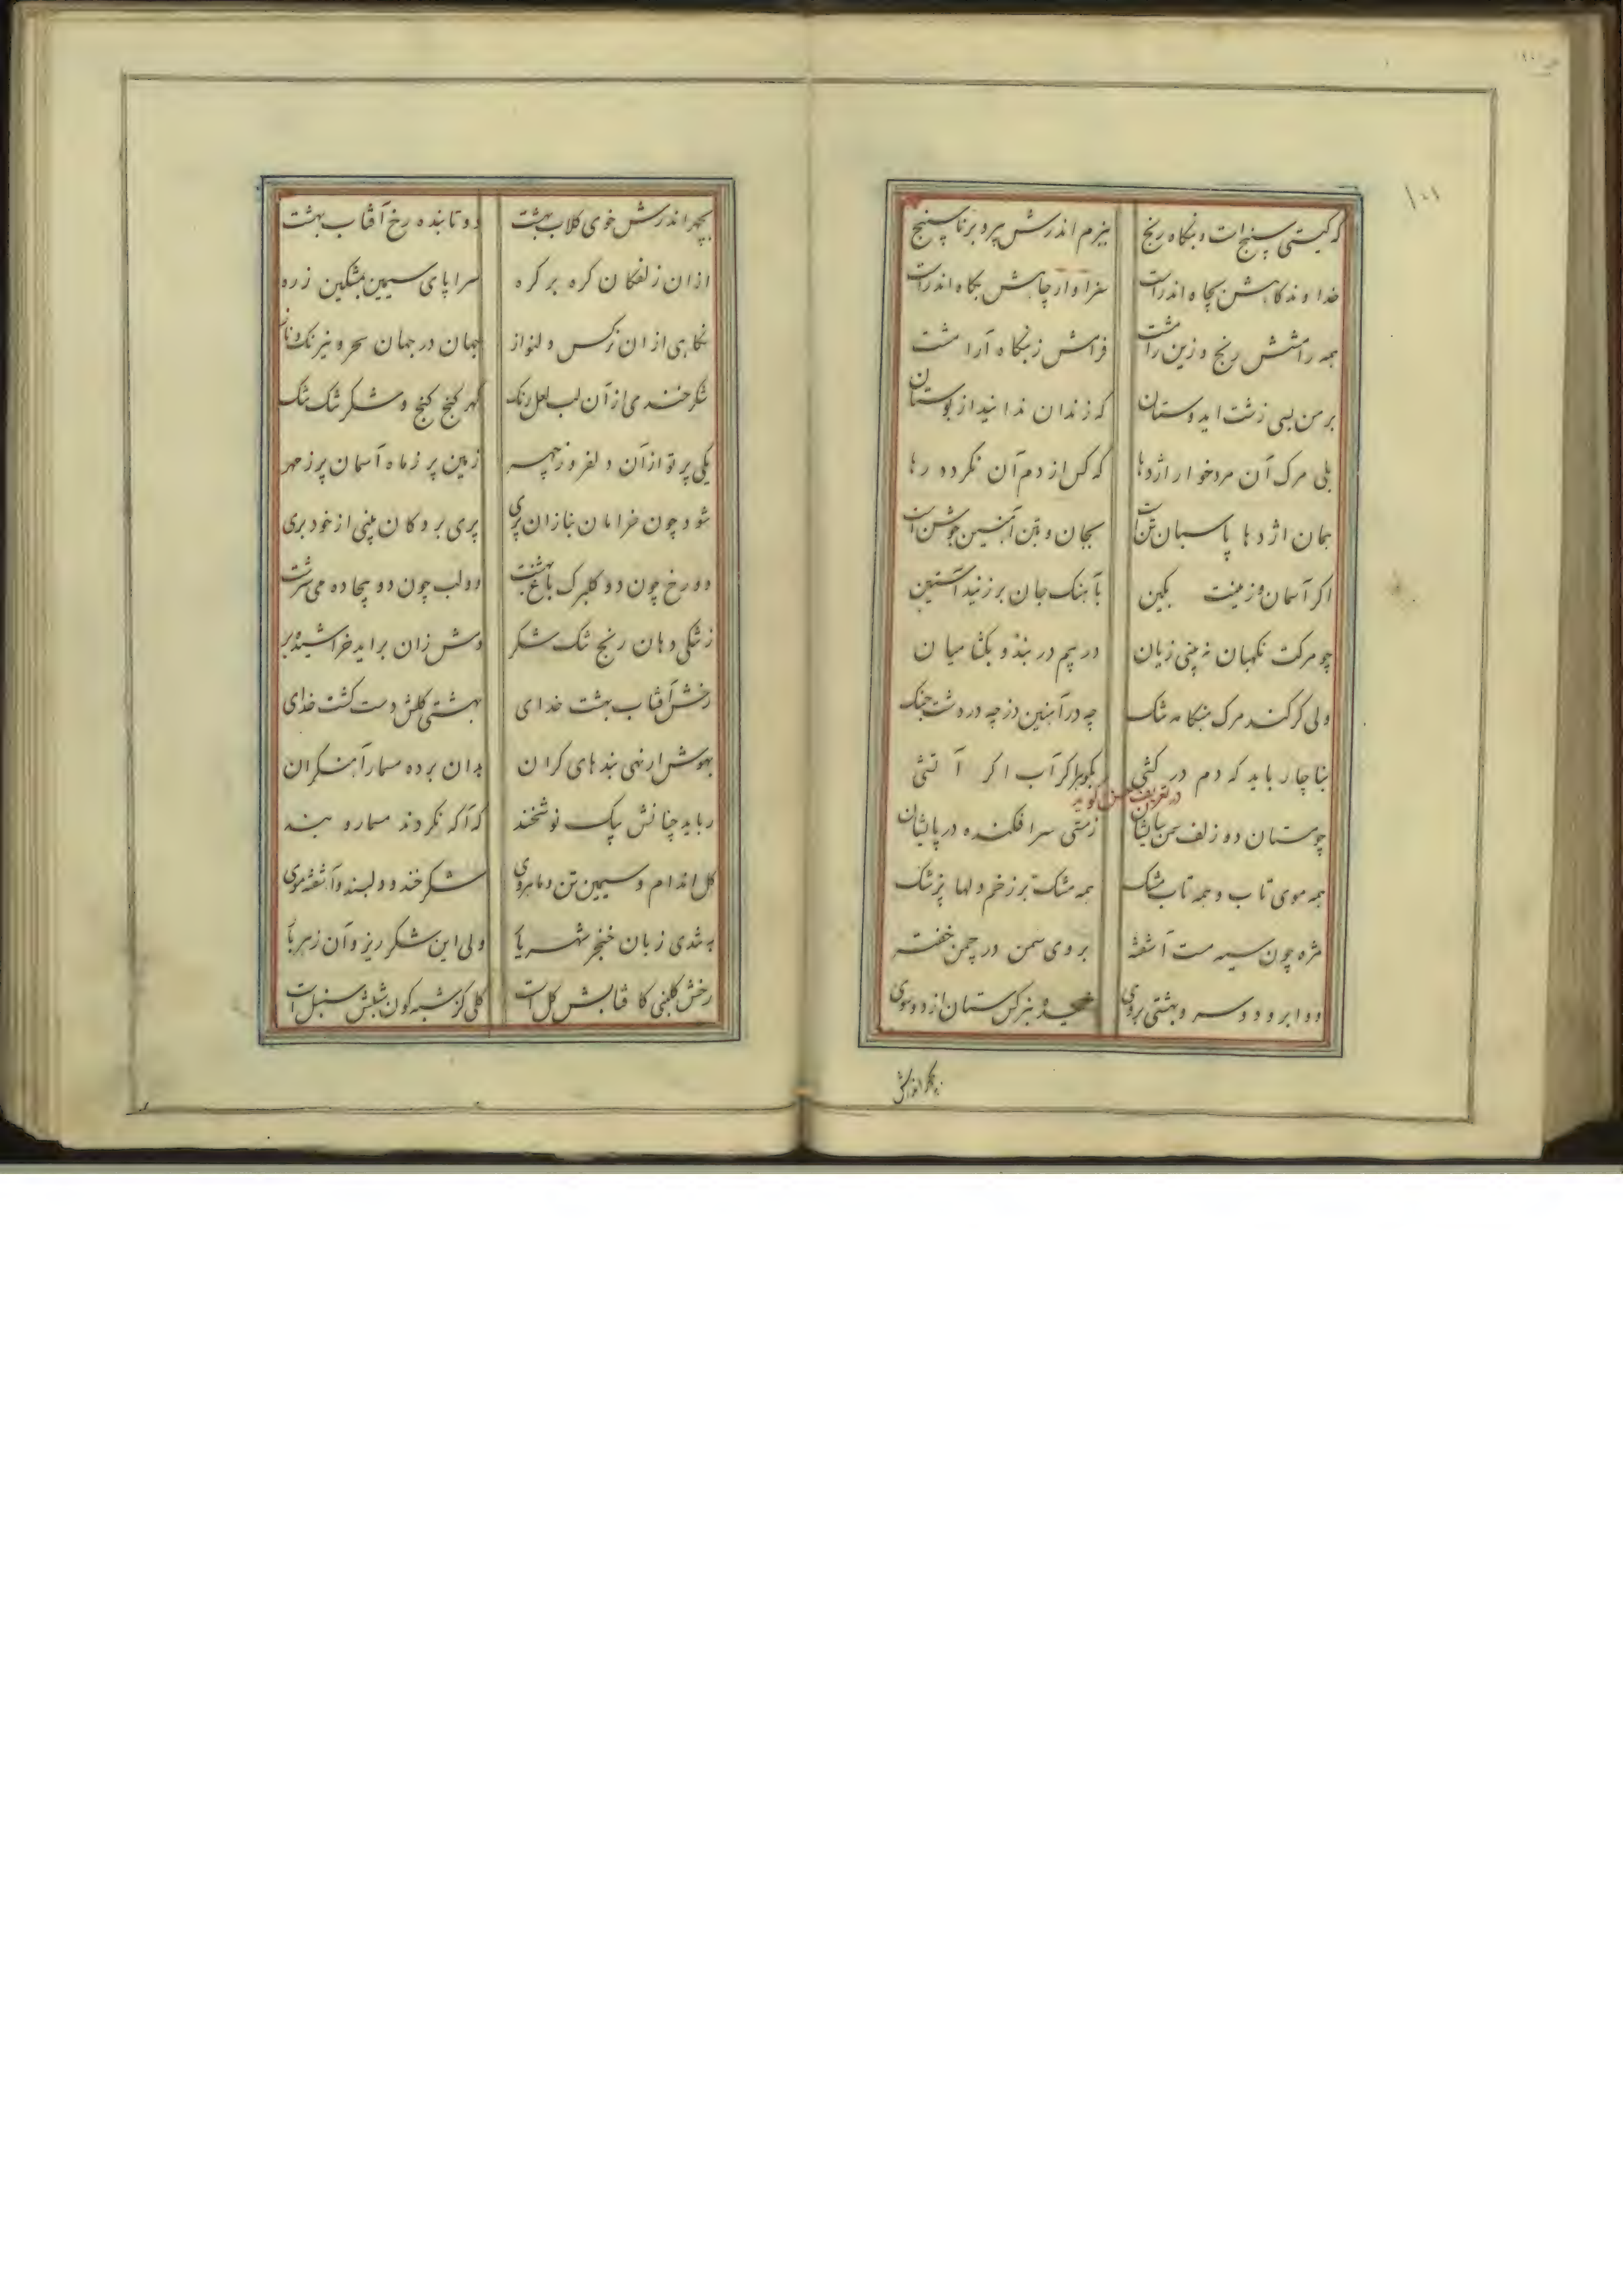 ۱۰۱
که کیتی سپنج است و بنکاه رنج ببزم اندرش پیر و برنا سپنج
خداوند کاهش بچاه اندر است سزاوار چاهش بکاه اندر است
همه رامشش رنج و زین راست فراش ز بنکاه آراست
بر من بسی زشت اید دوستان که زندان ندانید از بوستان
بلی مرک آن مردخوار اژدها که کس از دم آن نکردد رها
همان اژدها پاسبان تن است بجان و بتن آهنین جوشن است
اکر آسمان و زمینت بکین بآهنک جان برزنید آستین
چو مرکت نکهبان نه بینی زیان در بیم در بند و بکشا میان
ولی کر کند مرک هنکامه تنک چه در آهنین دز چه در دشت جنک
بناچار باید که دم در کشی اکر آب اکر آتشی
در تعریف حسن کوید
چو مستان دو زلف سمن سایشان ز مستی سر افکنده در پایشان
همه موی تاب و همه تاب مشک همه مشک بر زخم دلها پزشک
مژه چون سیه مست آشفته بروی سمن در چمن خفته
دو ابرو دو و بهشتی بروی نرکس ستان از دو سوی
بچهر اندرش
بچهر اندرش خوی کلاب بهشت دو تابنده رخ آفتاب بهشت
از ان زلفکان کره بر کره سراپای سیمین بمشکین زره
نکاهی از ان نرکس دلنواز جهان در جهان سحر و نیرنک و ناز
شکرخنده‌ی از آن لب لعل رنک کهر کنج کنج و شکر تنک تنک
یکی پرتو از آن دلفروز چهر زمین پر ز ماه آسمان پر ز مهر
شود چون خرامان بناز ان پری پری بر وکان بینی از خود بری
دو رخ چون دو کلبرک باغ بهشت دو لب چون دو بیجاده می سرشت
ز تنکی دهان رنج تنک شکر دمش زان براید خراشیده بر
رخش آفتاب بهشت خدای بهشتی کلش دست کشت خدای
بهوش ار نهی بندهای کران بدان برده مسمار آهنکران
رباید چنانش بیک نوشخند که آکه نکردند مسمار و بند
کل اندام و سیمین تن و ماهروی شکر خند و دلبند و آشفته موی
به تندی زبان خنجر شهریار ولی این شکر ریز و آن زهربار
رخش کلبنی کافتابش کل است کلی کز شبه کون سنبل است